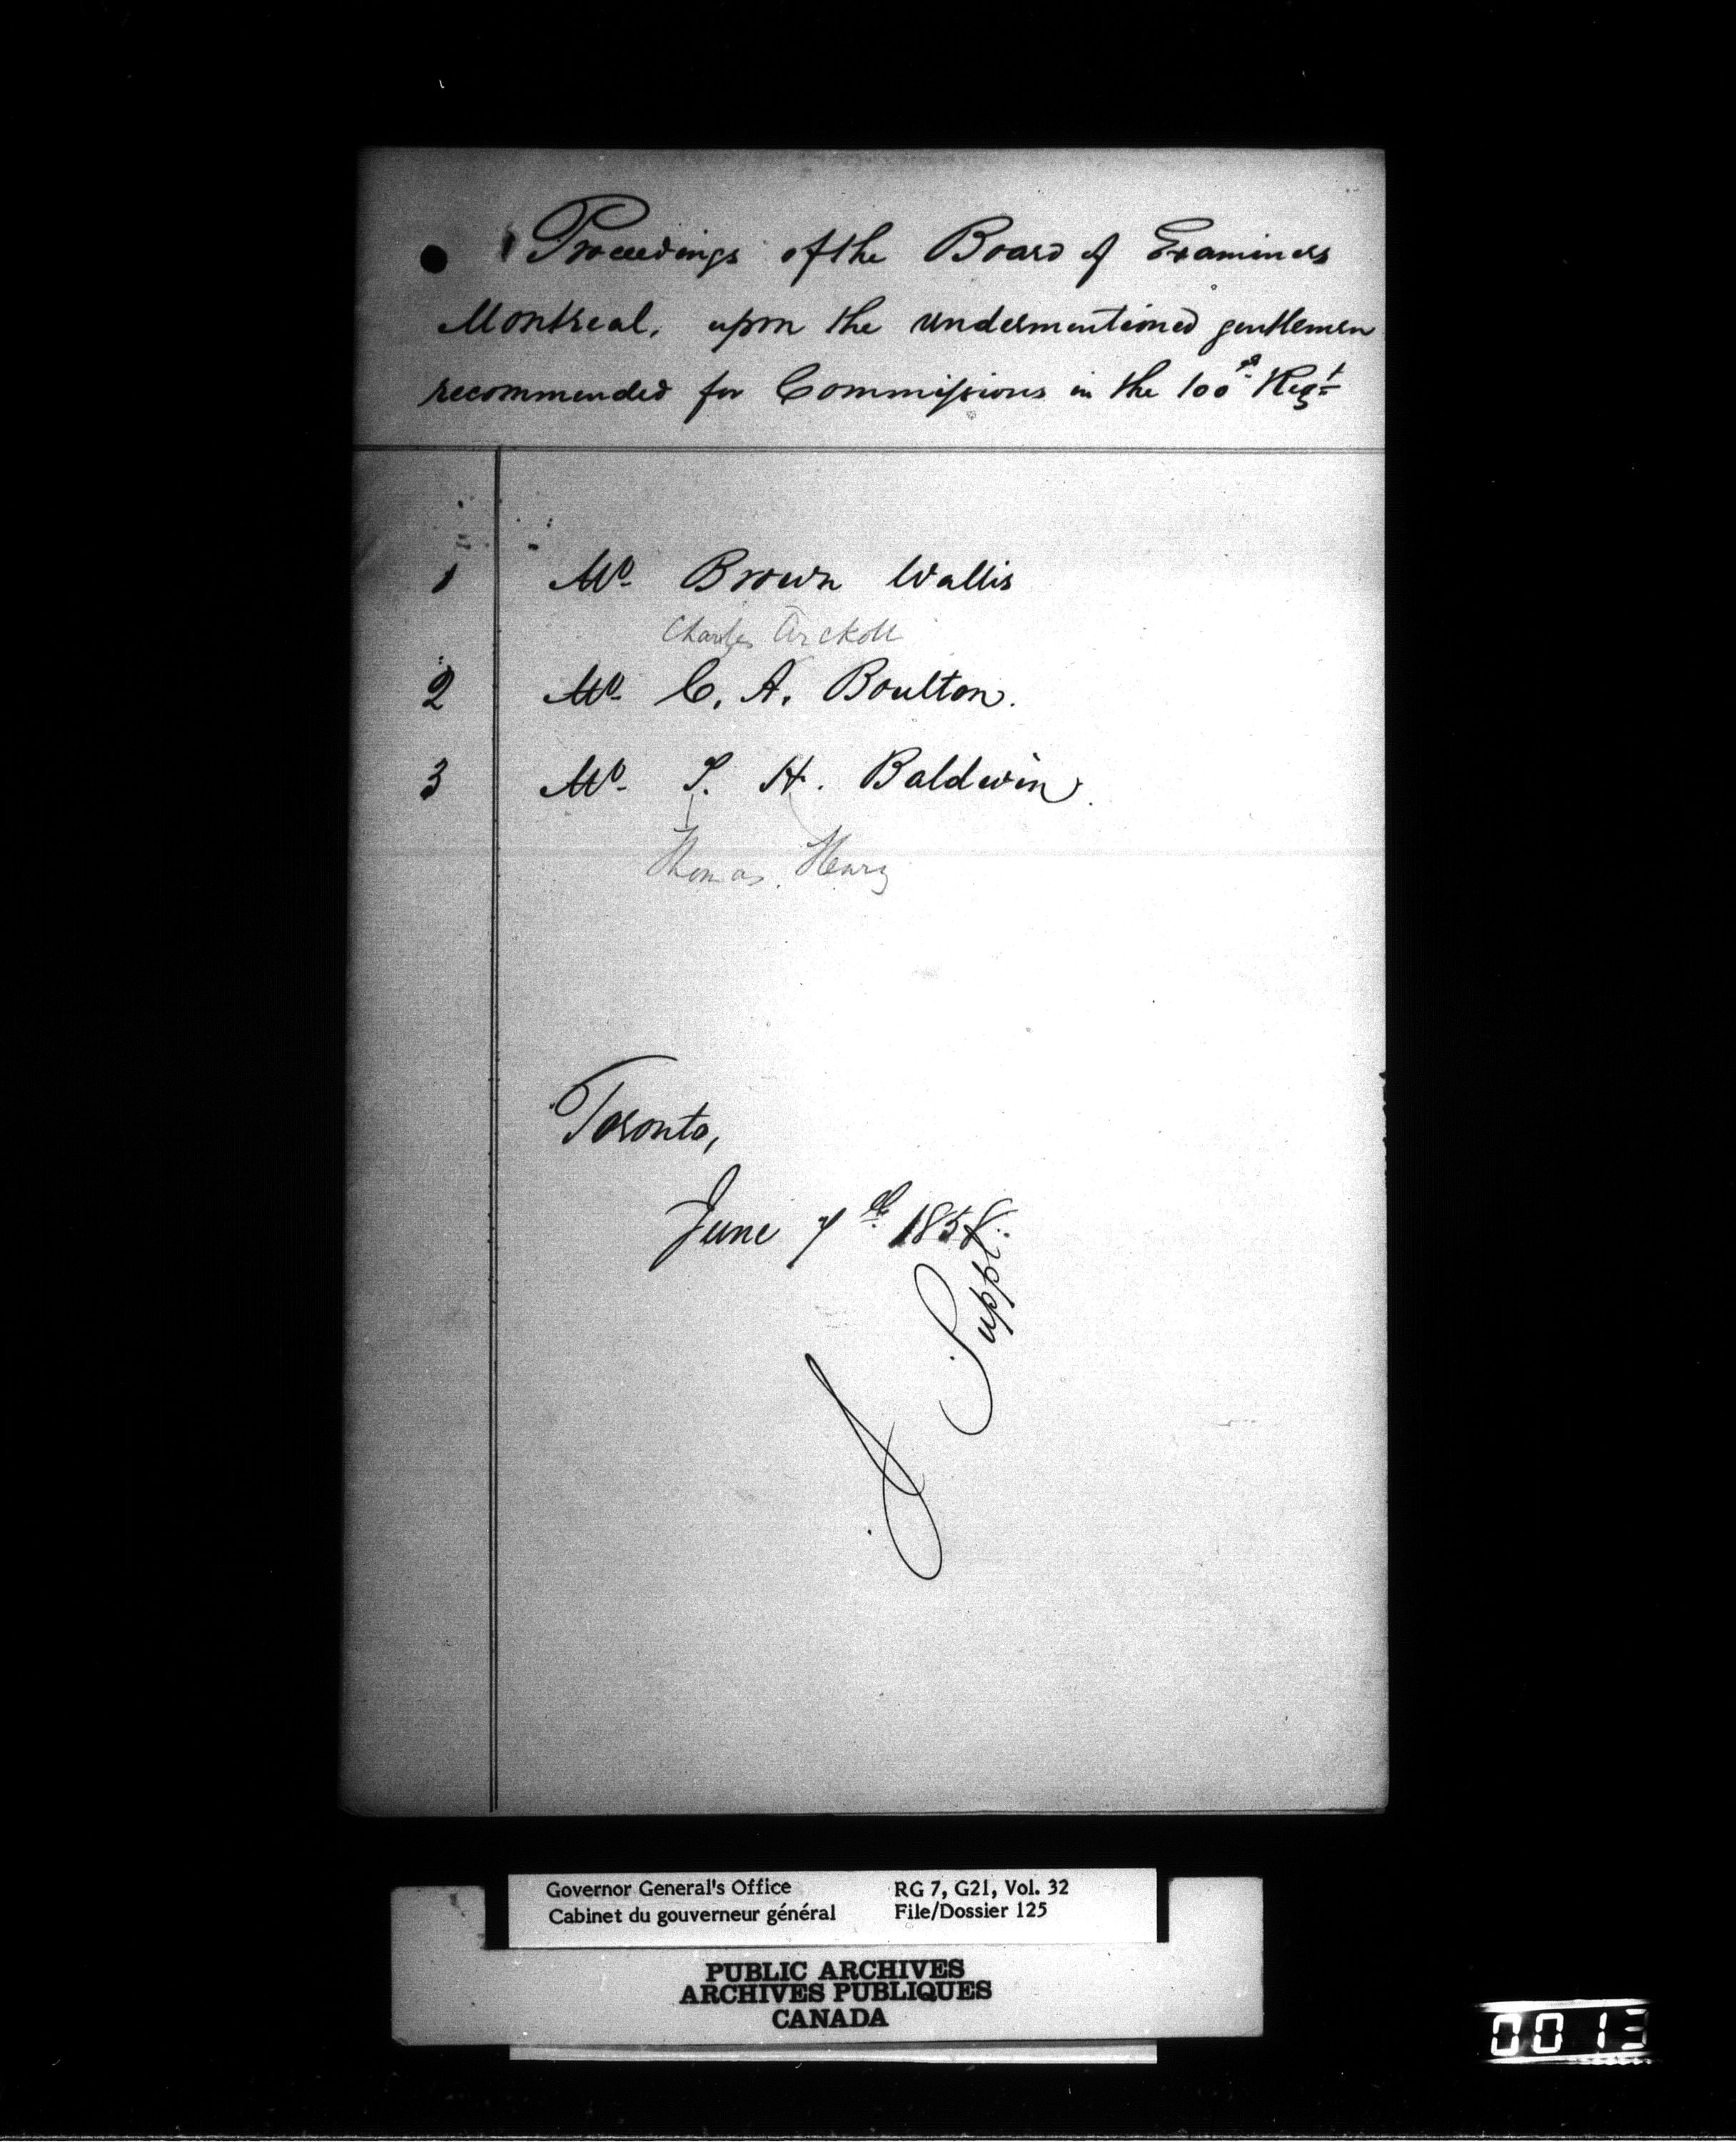 Proceedings of the Board of Examiners
Montreal, upon the undermentioned gentlemen
recommended for Commissions in the 100th Regt
1 Mr Brown Wallis
Charles Arckoll
2 Mr C. A. Boulton.
3 Mr T. H. Baldwin.
Thomas. Henry
Toronto,
June 7th 1858.
Suppl.
Governor General's Office RG 7, G21, Vol. 32
Cabinet du gouverneur général File/Dossier 125
PUBLIC ARCHIVES
ARCHIVES PUBLIQUES
CANADA
0013